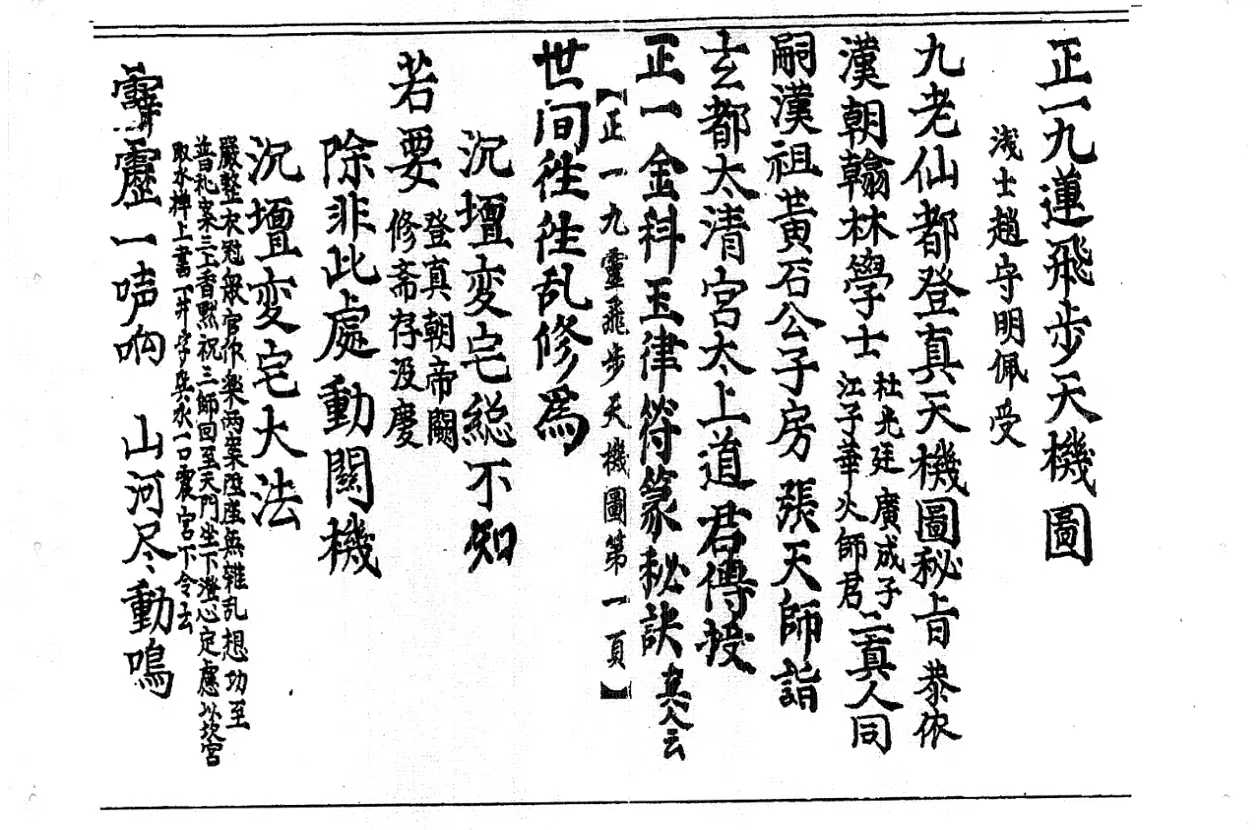 正一九蓮飛步天機圖
浅士趙守明佩受
九老仙都登真天機圖秘旨恭依
漢朝翰林學士杜光廷廣成子江子華火師君二真人同
嗣漢祖黃石公子房張天師詣
玄都太清宮太上道君傳授
正一金科玉律符篆秘訣真人云
【正一九靈飛步天機圖第一頁】
世间往往乱修為
沉壇変宅総不知
若要登真朝帝闕修斋存没慶
除非此處動関機
沉壇変宅大法
嚴整衣冠众官作樂两班陞座無雜乱想功至
普礼案三上香默祝三師回至天門坐下澄心定慮以坎宮
取水禅上書下井字吳水一口震宮下令去
霹靂一声响 山河尽動鳴